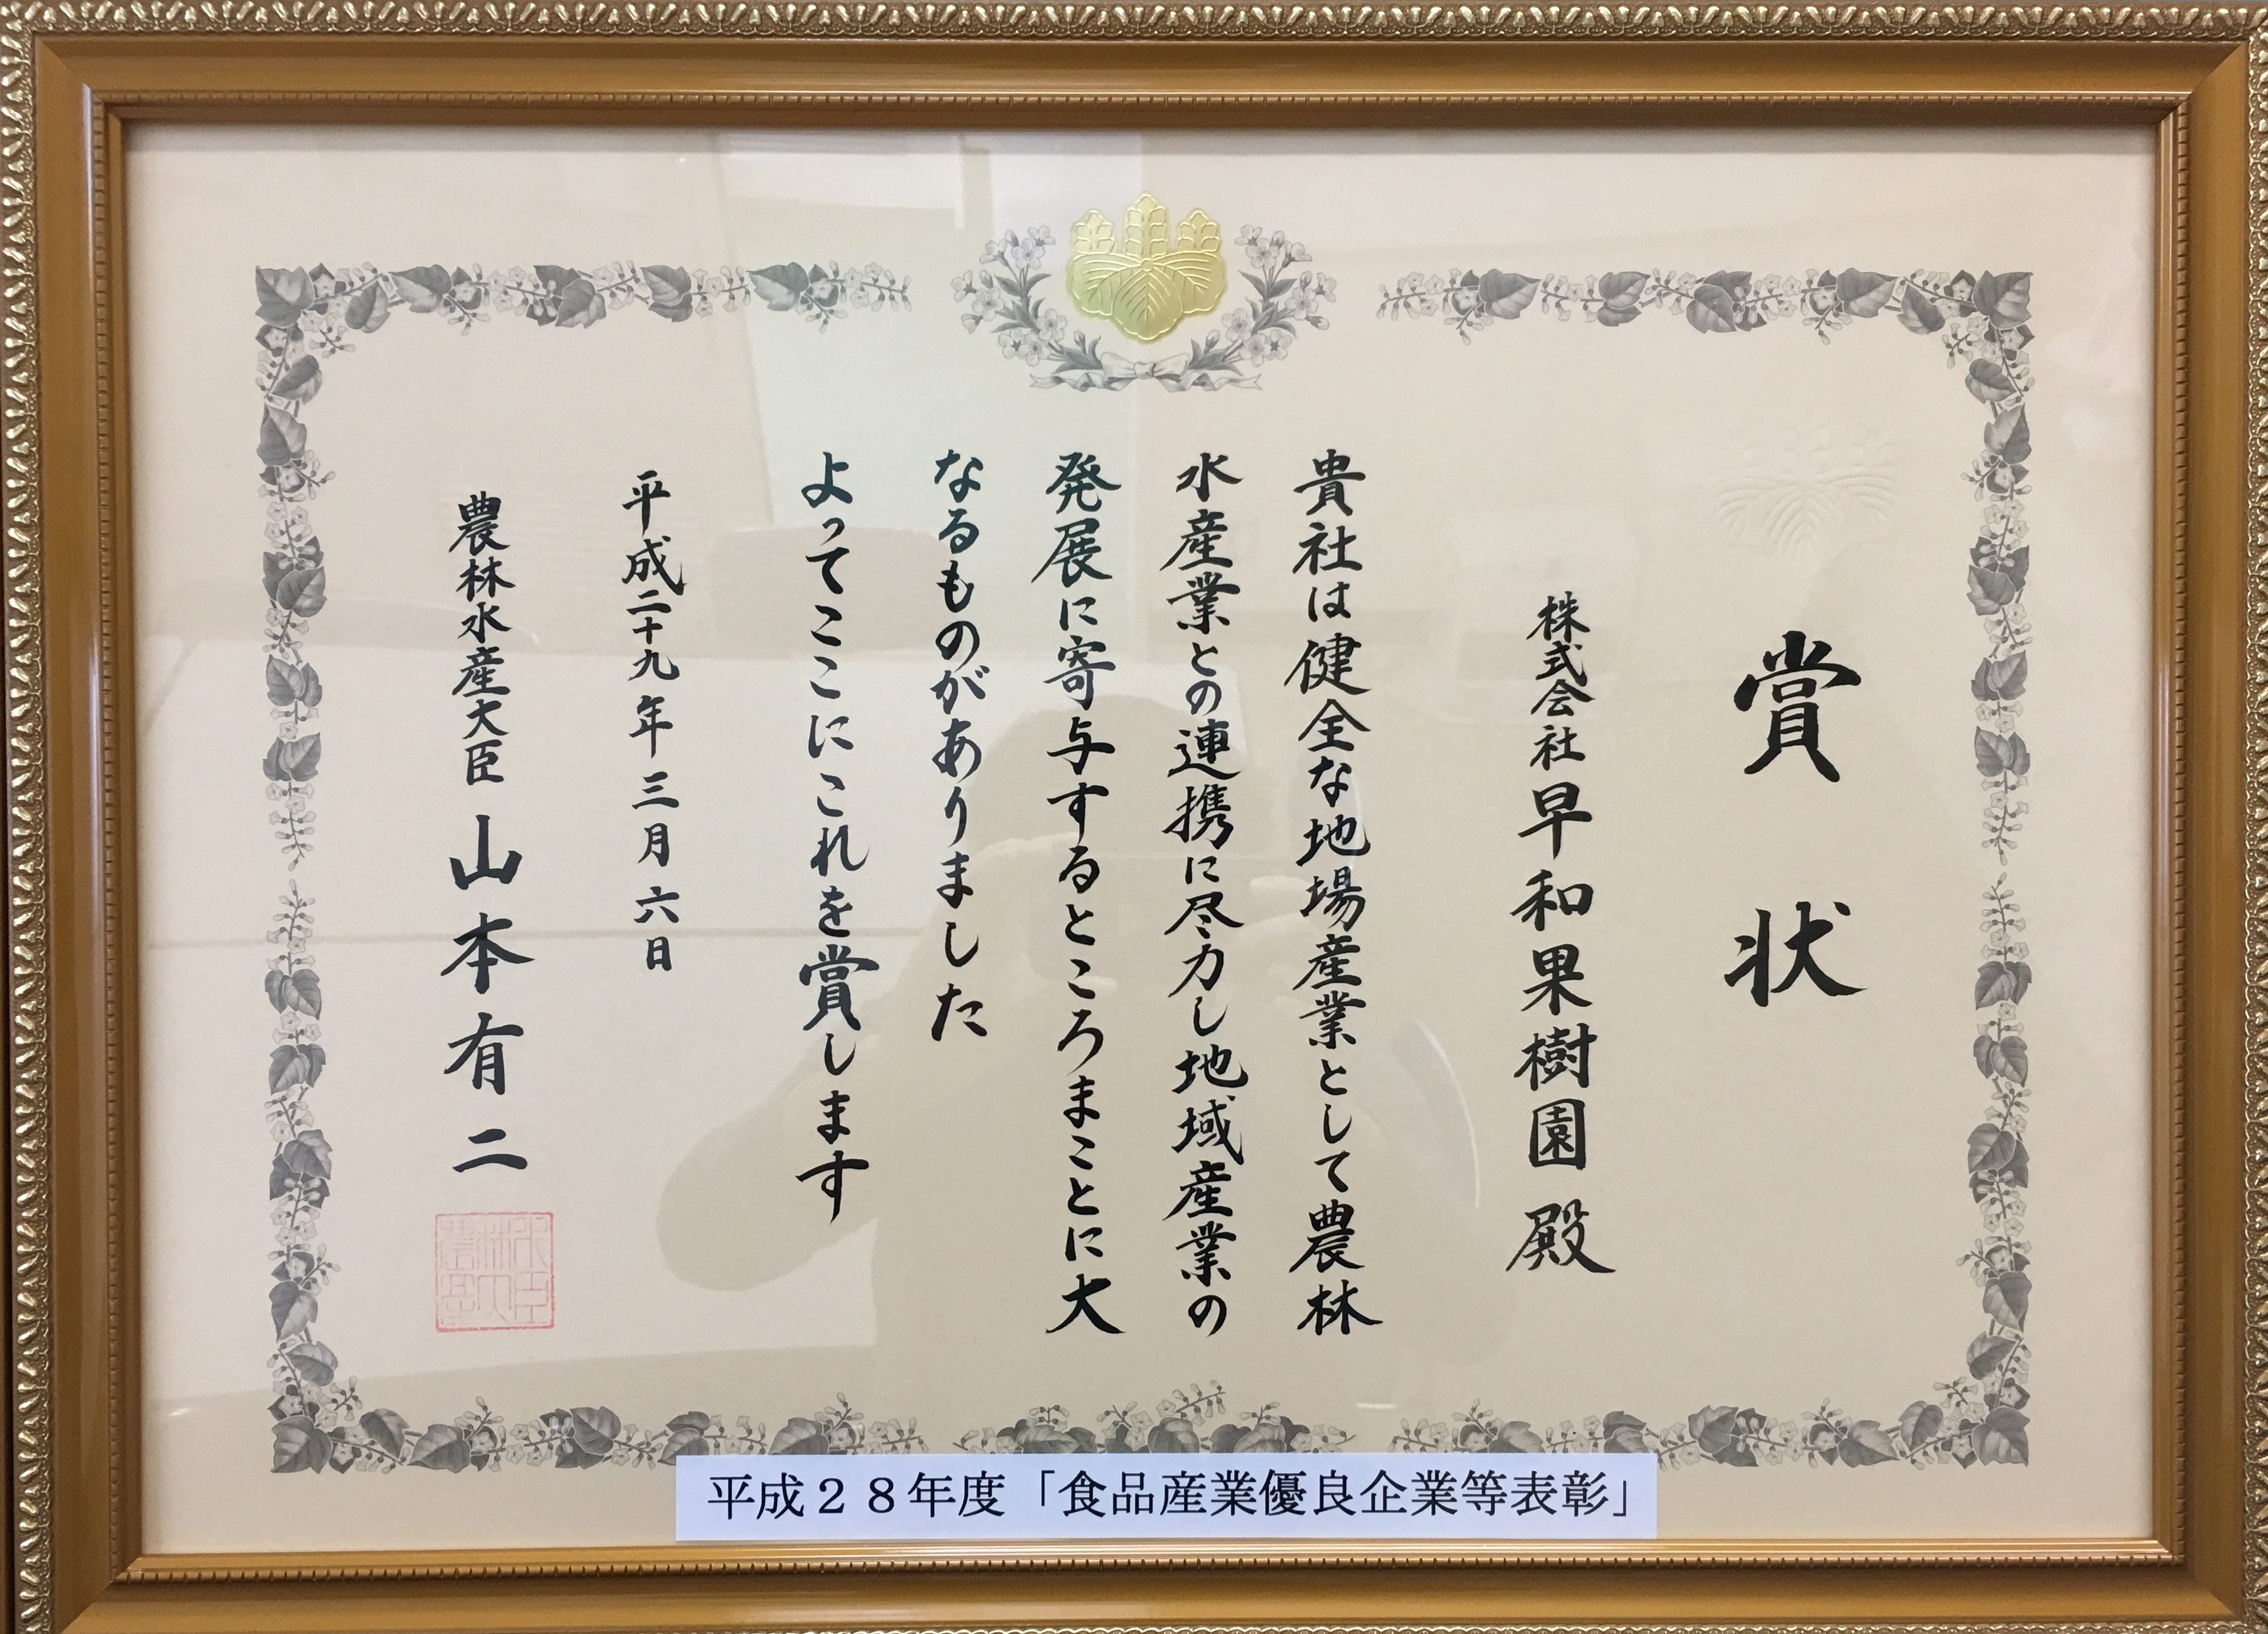 賞状
株式会社早和果樹園殿
貴社は健全な地場産業として農林
水産業との連携に尽力し地域産業の
発展に寄与するところまことに大
なるものがありました
よってここにこれを賞します
平成二十九年三月六日
農林水産大臣山本有二
平成２８年度「食品産業優良企業等表彰」